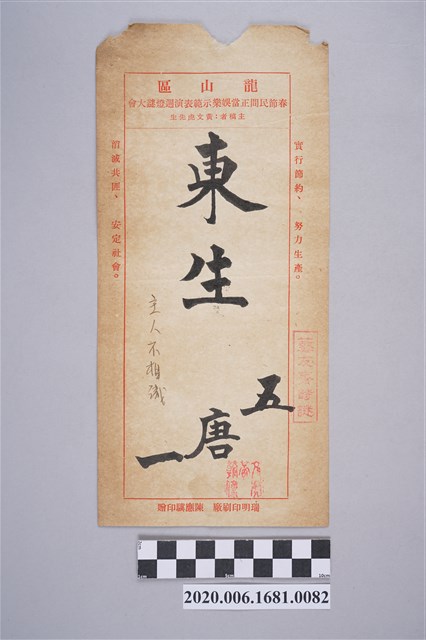 龍山區
春節民間正當娛樂示範表演週燈謎大會
主稿者：黃文虎先生
實行節約、 努力生產。
東生
五唐一
主人不相識
消滅共匪、 安定社會。
瑞明印刷廠 印贈
2020.006.1681.0082